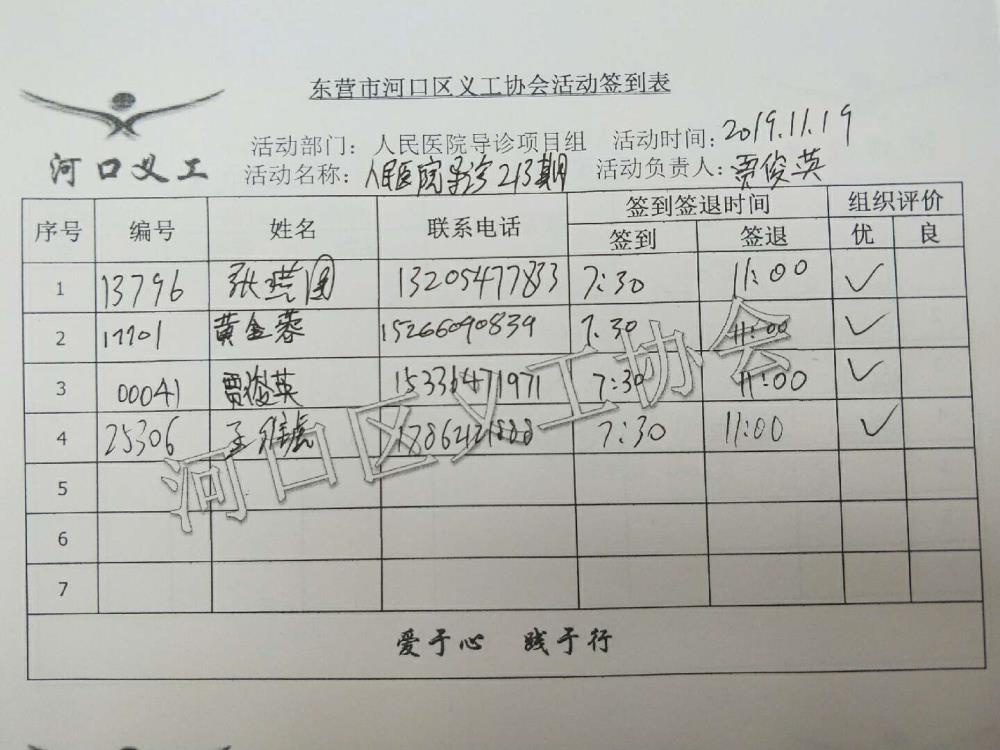 东营市河口区义工协会活动签到表
河口义工
活动部门: 人民医院导诊项目组 活动时间: 2019.11.19
活动名称: 人民医院导诊213期 活动负责人: 贾俊英
序号 编号 姓名 联系电话 签到签退时间 组织评价
签到 签退 优 良
1 13796 张 13205477833 7:30 11:00 ✓
2 17701 黄金蓉 15266090839 7:30 11:00 ✓
3 00041 贾俊英 15336471971 7:30 11:00 ✓
4 25306 7:30 11:00 ✓
5
6
7
河口区义工协会
爱于心 践于行